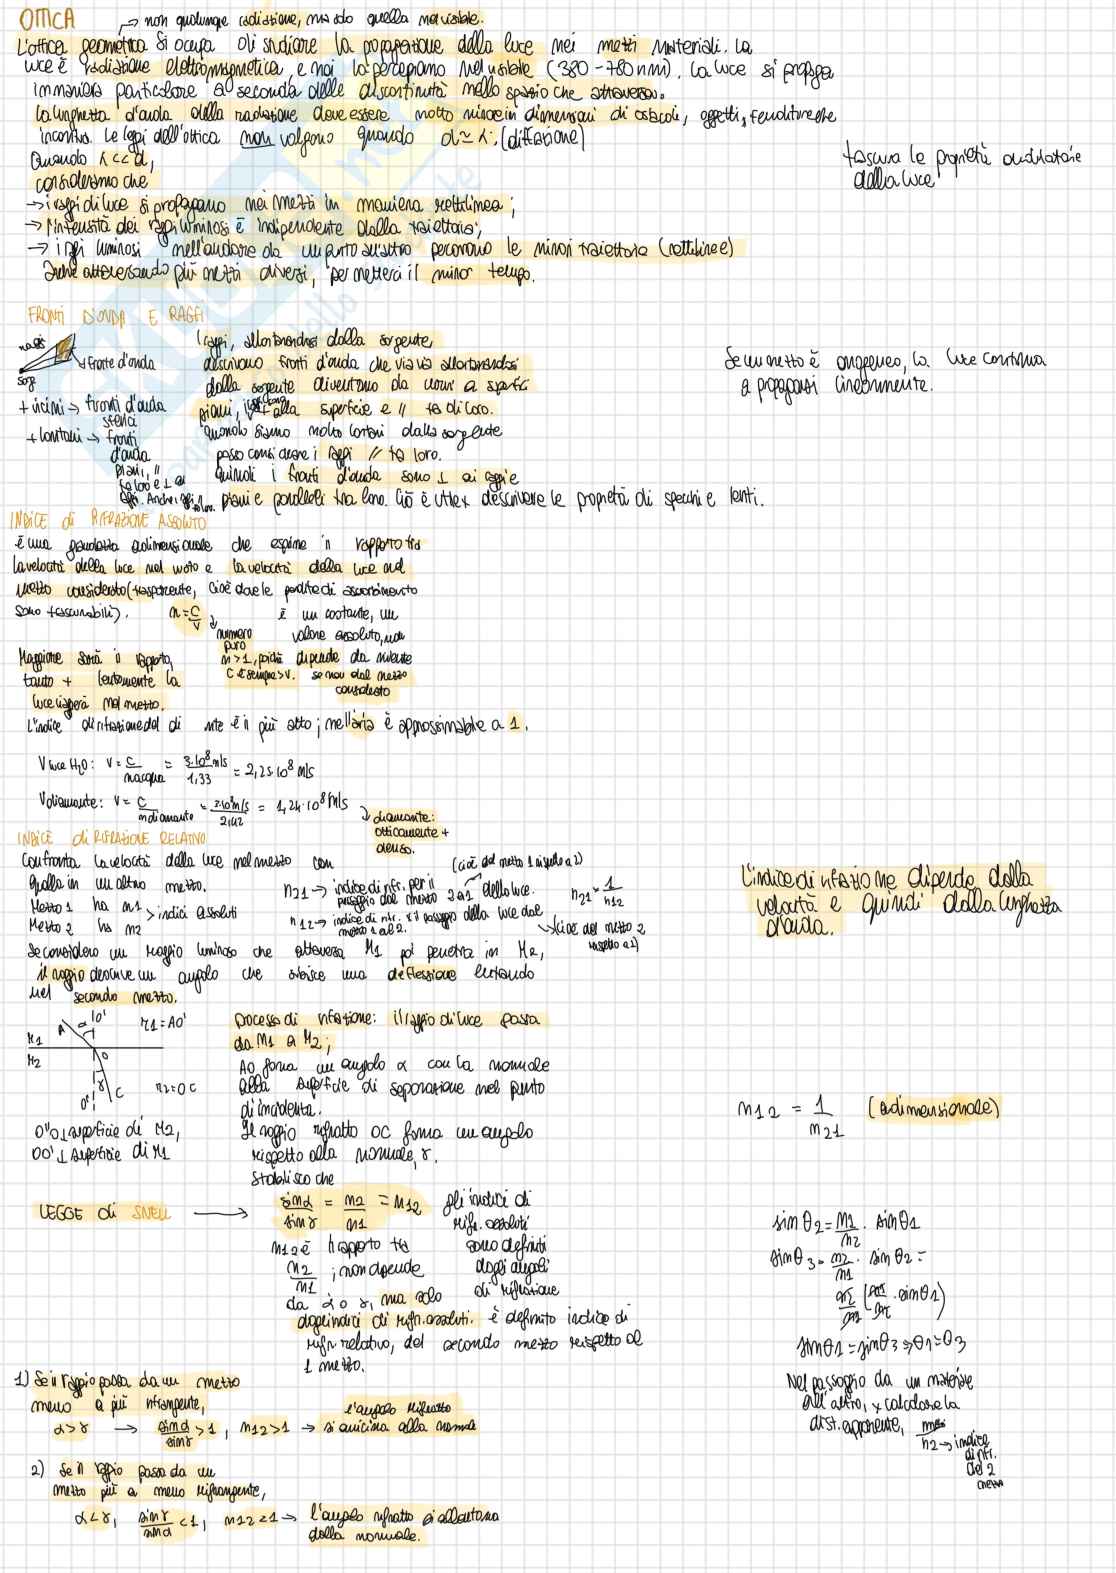 OTTICA → non qualunque radiazione, ma solo quella nel visibile.
L'ottica geometrica si occupa di studiare la propagazione della luce nei mezzi materiali. La
luce è radiazione elettromagnetica, e noi la percepiamo nel visibile (380-780nm). La luce si propaga
in maniera particolare a seconda delle discontinuità nello spazio che attraversa.
La lunghezza d'onda della radiazione deve essere molto minore in dimensioni di ostacoli, oggetti, fenditure che
incontra. Le leggi dell'ottica non valgono quando d≃λ. (diffrazione)
Quando λ<<d,
consideriamo che
trascura le proprietà ondulatorie
della luce
→ i raggi di luce si propagano nei mezzi in maniera rettilinea;
→ l'intensità dei raggi luminosi è indipendente dalla traiettoria;
→ i raggi luminosi nell'andare da un punto all'altro percorrono le minori traiettorie (rettilinee)
anche attraversando più mezzi diversi, per metterci il minor tempo.
FRONTI D'ONDA E RAGGI
raggi
fronte d'onda
sorg
+ vicini → fronti d'onda
sferici
+ lontani → fronti
d'onda
piani, //
tra loro e ⊥ ai
raggi. Anche i raggi // tra loro.
I raggi, allontanandosi dalla sorgente,
descrivono fronti d'onda che via via allontanandosi
dalla sorgente diventano da curvi a sferici
piani, ⊥ alla superficie e // tra di loro.
Quando siamo molto lontani dalla sorgente
posso considerare i raggi // tra loro.
Quindi i fronti d'onda sono ⊥ ai raggi e
piani e paralleli tra loro. Ciò è utile x descrivere le proprietà di specchi e lenti.
Se un mezzo è omogeneo, la luce continua
a propagarsi linearmente.
INDICE di RIFRAZIONE ASSOLUTO
è una grandezza adimensionale che esprime il rapporto tra
la velocità della luce nel vuoto e la velocità della luce nel
mezzo considerato (trasparente, cioè dove le perdite di assorbimento
sono trascurabili). n = c/v
↳ numero
puro
n>1, poiché
c è sempre >v.
è un costante, un
valore assoluto, non
dipende da niente
se non dal mezzo
considerato
Maggiore sarà il rapporto,
tanto + lentamente la
luce viaggerà nel mezzo.
L'indice di rifrazione del diamante è il più alto; nell'aria è approssimabile a 1.
V luce H₂O: v = c/n acqua = 3·10⁸ m/s / 1,33 = 2,25·10⁸ m/s
V diamante: v = c/n diamante = 3·10⁸ m/s / 2,42 = 1,24·10⁸ m/s
↳ diamante:
otticamente +
denso.
INDICE di RIFRAZIONE RELATIVO
Confronta la velocità della luce nel mezzo con
quella in un altro mezzo.
Mezzo 1 ha n1 > indici assoluti
Mezzo 2 ha n2
(cioè del mezzo 1 rispetto a 2)
n21 → indice di rifr. per il
passaggio dal mezzo 2 a 1 della luce. n21 = 1/n12
n12 → indice di rifr. x il passaggio della luce dal
mezzo 1 al 2. ↳ (cioè del mezzo 2
rispetto a 1)
L'indice di rifrazione dipende dalla
velocità e quindi dalla lunghezza
d'onda.
Se considero un raggio luminoso che attraversa M1 poi penetra in M2,
il raggio descrive un angolo che subisce una deflessione entrando
nel secondo mezzo.
A α O' r1=AO'
M1
M2 O
γ
O'' C r2=OC
O''O ⊥ superficie di M2,
OO' ⊥ superficie di M1
Processo di rifrazione: il raggio di luce passa
da M1 a M2;
AO forma un angolo α con la normale
alla superficie di separazione nel punto
di incidenza.
Il raggio rifratto OC forma un angolo
rispetto alla normale, γ.
Stabilisco che
n12 = 1/n21 (adimensionale)
LEGGE di SNELL → sinα/sinγ = n2/n1 = n12
gli indici di
rifr. assoluti
sono definiti
dagli angoli
di rifrazione
n12 è il rapporto tra
n2/n1; non dipende
da α o γ, ma solo
dagli indici di rifr. assoluti. è definito indice di
rifr. relativo, del secondo mezzo rispetto al
1 mezzo.
sinθ2 = n1/n2 · sinθ1
sinθ3 = n2/n1 · sinθ2 =
n2/n1 (n1/n2 · sinθ1)
sinθ1 = sinθ3 ⇒ θ1 = θ3
Nel passaggio da un materiale
all'altro, x calcolare la
dist. apparente,
n2 → indice
di rifr.
del 2
mezzo
1) Se il raggio passa da un mezzo
meno a più rifrangente,
α>γ → sinα/sinγ > 1, n12>1 → l'angolo rifratto
si avvicina alla normale
2) Se il raggio passa da un
mezzo più a meno rifrangente,
α<γ, sinγ/sinα <1, n12<1 → l'angolo rifratto si allontana
dalla normale.